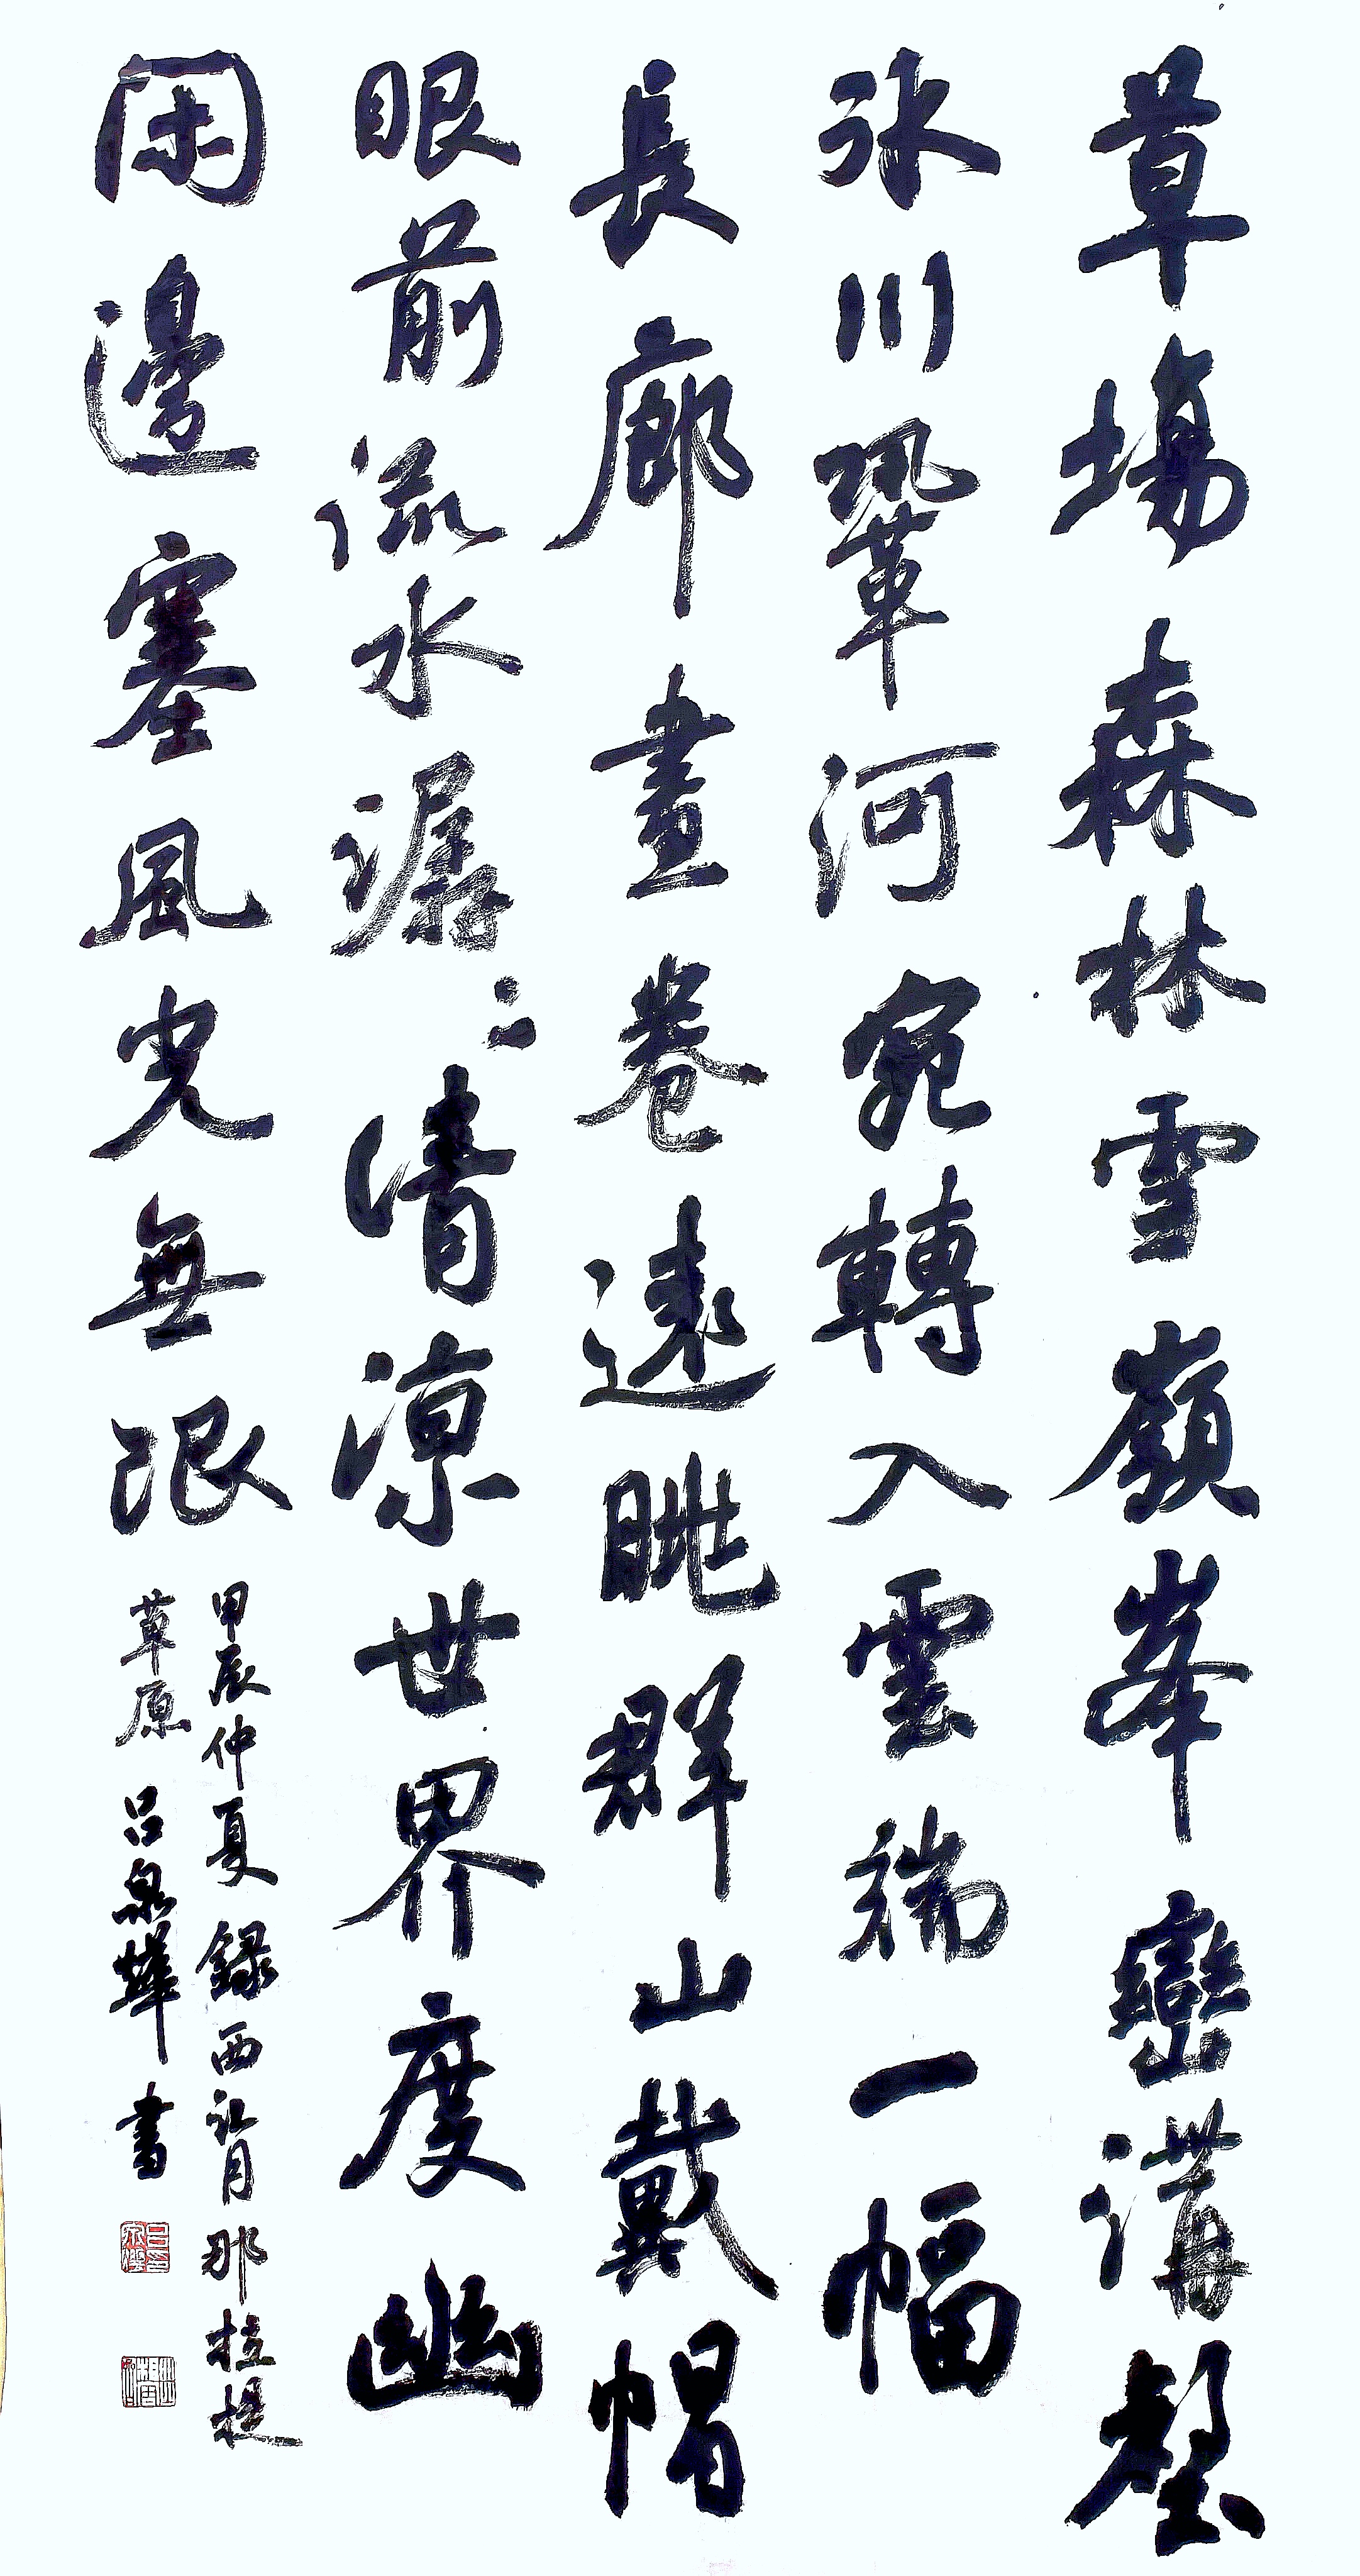 草場森林雪嶺峯巒溝壑
冰川鞏河宛轉入雲端一幅
長廊畫卷遠眺群山戴帽
眼前流水潺〻清凉世界度幽
閑邊塞風光無限
甲辰仲夏錄西江月那拉提
草原呂泉燁書